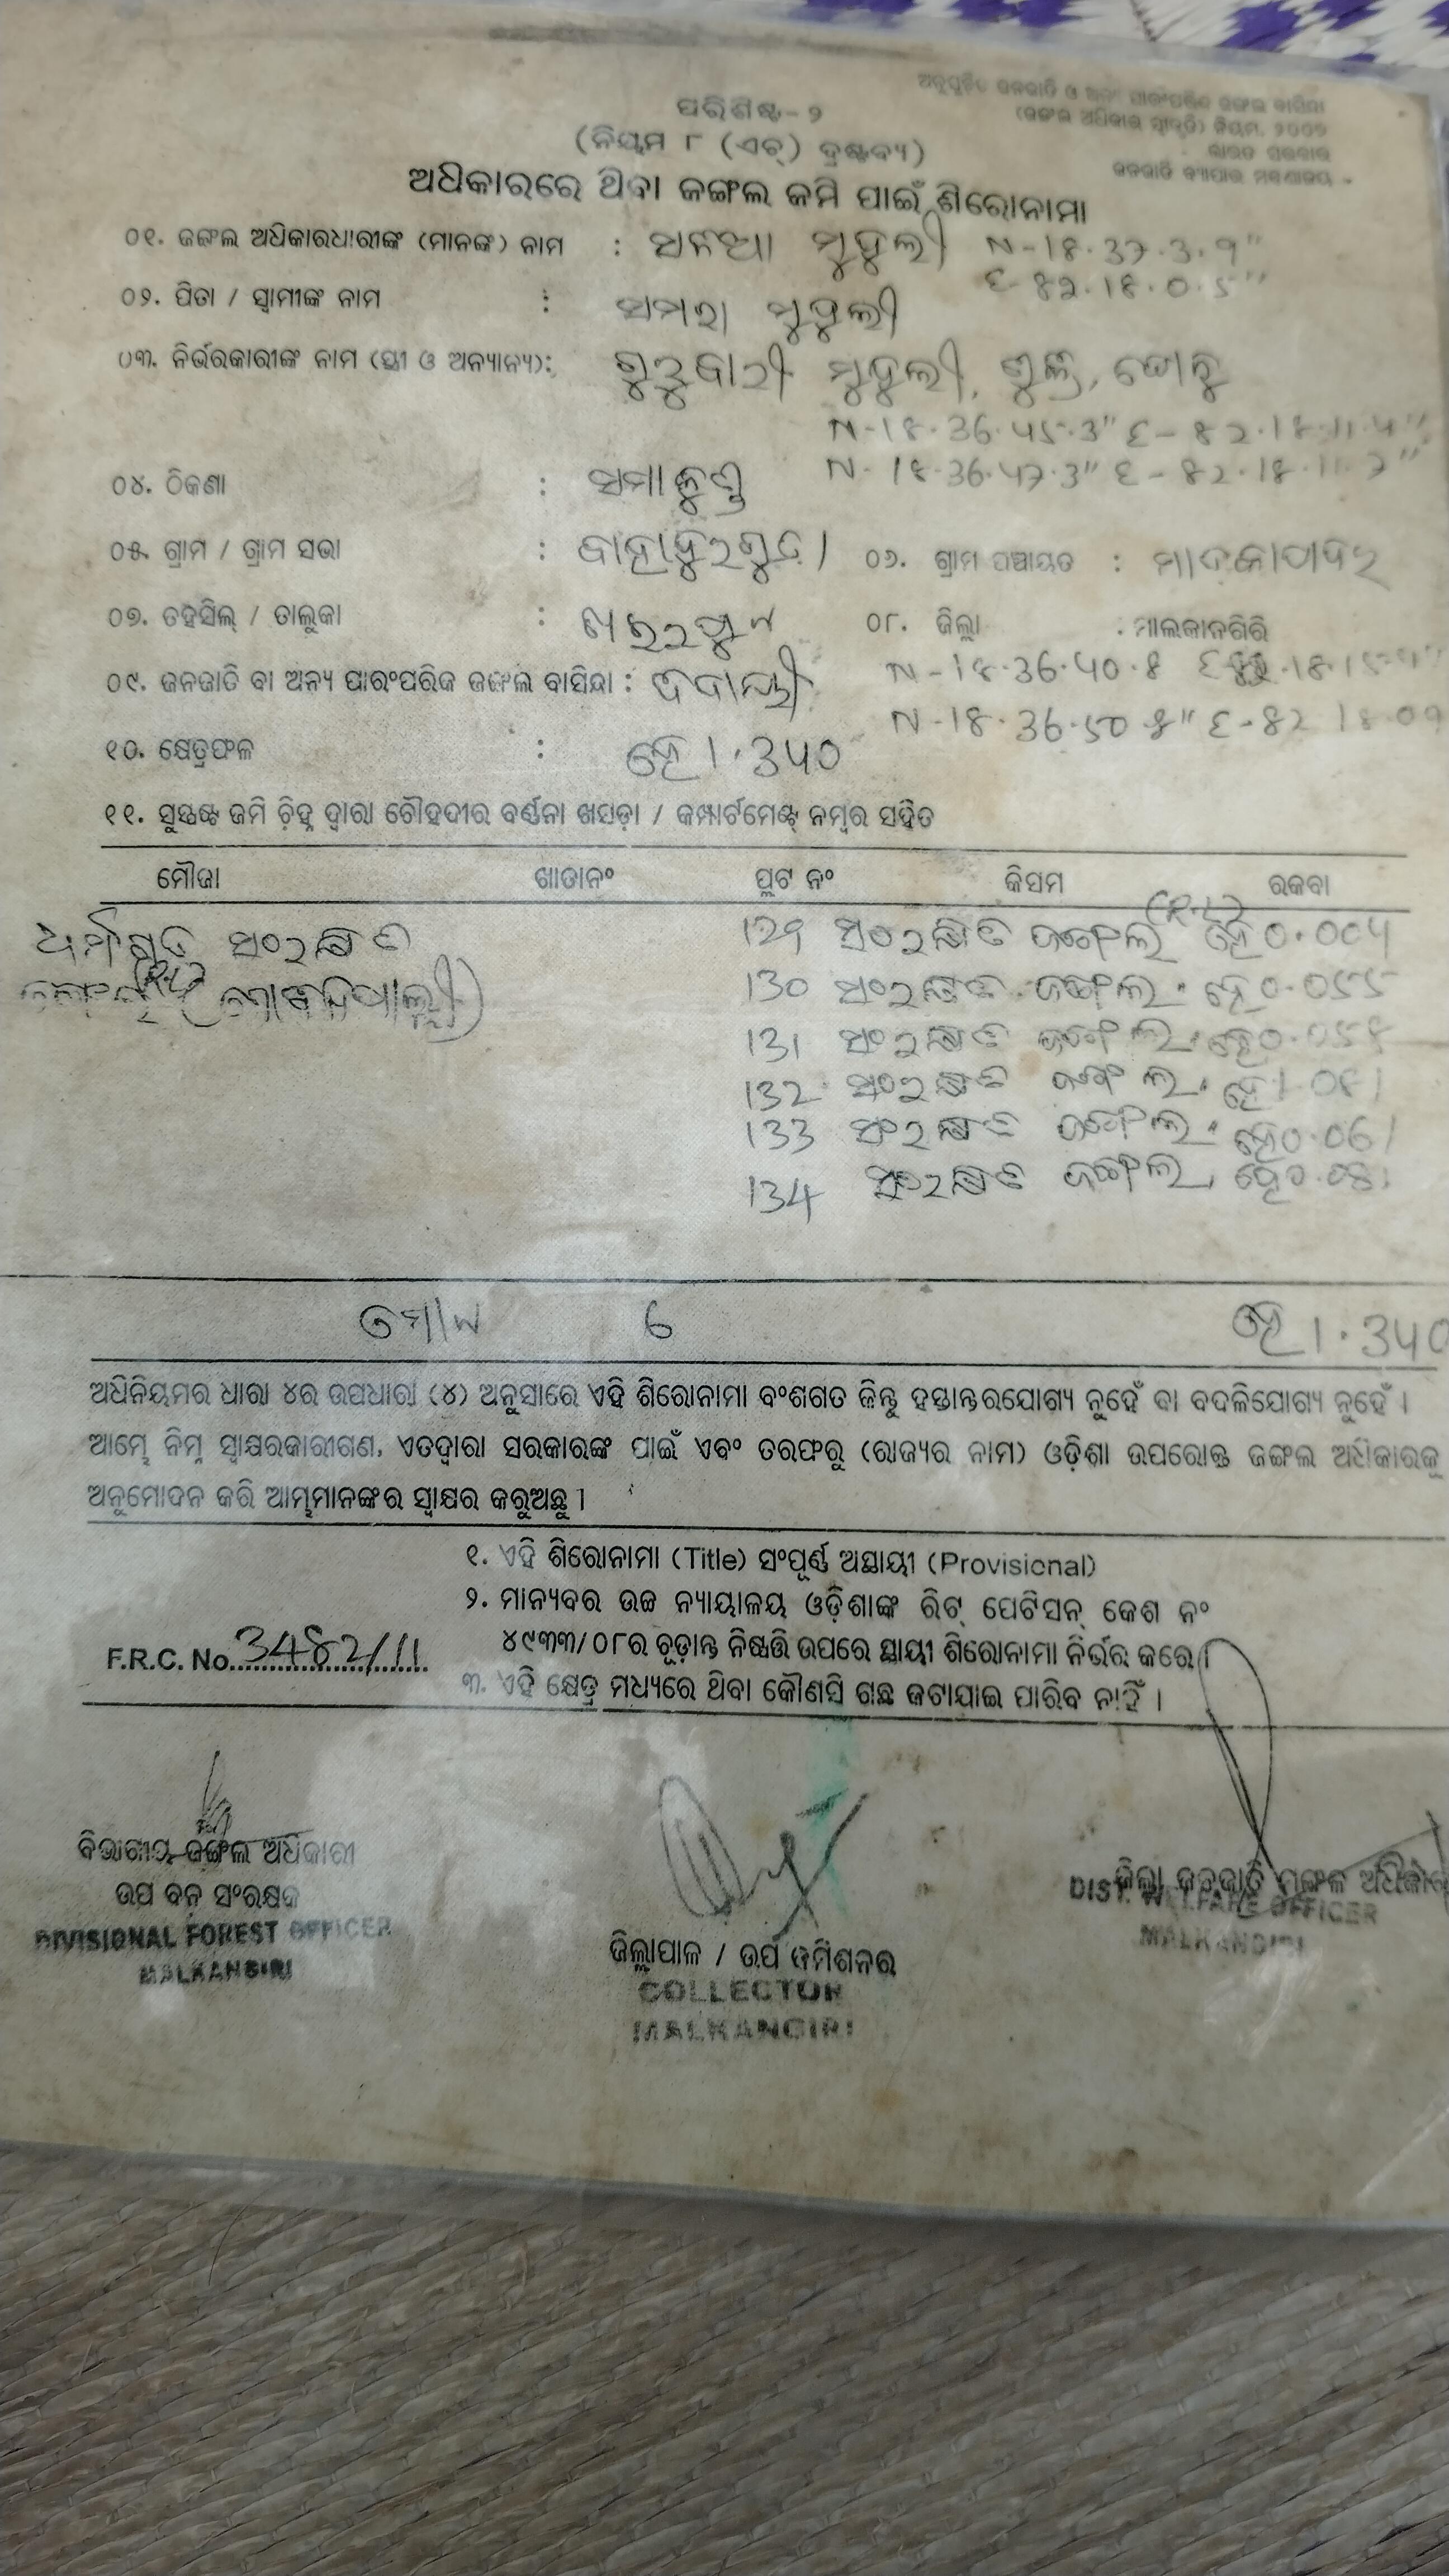 ଅନୁସୂଚିତ ଜନଜାତି ଓ ଅନ୍ୟ ପାରଂପରିକ ଜଙ୍ଗଲ ବାସିନ୍ଦା
(ଜଙ୍ଗଲ ଅଧିକାର ସ୍ୱୀକୃତି) ନିୟମ, ୨୦୦୭
ଭାରତ ସରକାର
ଜନଜାତି ବ୍ୟାପାର ମନ୍ତ୍ରଣାଳୟ
ପରିଶିଷ୍ଟ - ୨
(ନିୟମ ୮ (ଏଚ୍) ଦ୍ରଷ୍ଟବ୍ୟ)
ଅଧିକାରରେ ଥିବା ଜଙ୍ଗଲ ଜମି ପାଇଁ ଶିରୋନାମା
୦୧. ଜଙ୍ଗଲ ଅଧିକାରଧାରୀଙ୍କ (ମାନଙ୍କ) ନାମ : ମୁଦୁଲୀ N-18.37.3.9"
E-82.18.0.5"
୦୨. ପିତା / ସ୍ୱାମୀଙ୍କ ନାମ : ସମରା ମୁଦୁଲୀ
୦୩. ନିର୍ଭରକାରୀଙ୍କ ନାମ (ସ୍ତ୍ରୀ ଓ ଅନ୍ୟାନ୍ୟ): ଗୁରୁବାରୀ ମୁଦୁଲୀ,
N-18.36.45.3" E-82.18.11.4"
N-18.36.47.3" E-82.18.11.7"
୦୪. ଠିକଣା :
୦୫. ଗ୍ରାମ / ଗ୍ରାମ ସଭା : ବାହାଦୁରଗୁଡ଼ା ୦୬. ଗ୍ରାମ ପଞ୍ଚାୟତ :
୦୭. ତହସିଲ୍ / ତାଲୁକା : ଖଇରପୁଟ ୦୮. ଜିଲ୍ଲା : ମାଲକାନଗିରି
୦୯. ଜନଜାତି ବା ଅନ୍ୟ ପାରଂପରିକ ଜଙ୍ଗଲ ବାସିନ୍ଦା : N-18.36.40.8
N-18.36.50.8" E-82
୧୦. କ୍ଷେତ୍ରଫଳ : ହେ 1.340
୧୧. ସୁସ୍ପଷ୍ଟ ଜମି ଚିହ୍ନ ଦ୍ୱାରା ଚୌହଦୀର ବର୍ଣ୍ଣନା ଖସଡ଼ା / କମ୍ପାର୍ଟମେଣ୍ଟ୍ ନମ୍ବର ସହିତ
ମୌଜା ଖାତାନଂ ପ୍ଲଟ ନଂ କିସମ ରକବା
ସଂରକ୍ଷିତ 129 ସଂରକ୍ଷିତ ଜଙ୍ଗଲ ହେ 0.004
130 ସଂରକ୍ଷିତ ଜଙ୍ଗଲ ହେ 0.055
131 ସଂରକ୍ଷିତ ଜଙ୍ଗଲ
132 ସଂରକ୍ଷିତ ଜଙ୍ଗଲ
133 ସଂରକ୍ଷିତ ଜଙ୍ଗଲ ହେ 0.061
134 ସଂରକ୍ଷିତ ଜଙ୍ଗଲ
6 ହେ 1.340
ଅଧିନିୟମର ଧାରା ୪ର ଉପଧାରା (୪) ଅନୁସାରେ ଏହି ଶିରୋନାମା ବଂଶଗତ କିନ୍ତୁ ହସ୍ତାନ୍ତରଯୋଗ୍ୟ ନୁହେଁ ବା ବଦଳିଯୋଗ୍ୟ ନୁହେଁ ।
ଆମ୍ଭେ ନିମ୍ନ ସ୍ୱାକ୍ଷରକାରୀଗଣ, ଏତଦ୍ୱାରା ସରକାରଙ୍କ ପାଇଁ ଏବଂ ତରଫରୁ (ରାଜ୍ୟର ନାମ) ଓଡ଼ିଶା ଉପରୋକ୍ତ ଜଙ୍ଗଲ ଅଧିକାରକୁ
ଅନୁମୋଦନ କରି ଆମ୍ଭମାନଙ୍କର ସ୍ୱାକ୍ଷର କରୁଅଛୁ ।
୧. ଏହି ଶିରୋନାମା (Title) ସଂପୂର୍ଣ୍ଣ ଅସ୍ଥାୟୀ (Provisional)
୨. ମାନ୍ୟବର ଉଚ୍ଚ ନ୍ୟାୟାଳୟ ଓଡ଼ିଶାଙ୍କ ରିଟ୍ ପେଟିସନ୍ କେଶ ନଂ
୪୯୩୩/୦୮ର ଚୂଡ଼ାନ୍ତ ନିଷ୍ପତ୍ତି ଉପରେ ସ୍ଥାୟୀ ଶିରୋନାମା ନିର୍ଭର କରେ ।
F.R.C. No. 3482/11
୩. ଏହି କ୍ଷେତ୍ର ମଧ୍ୟରେ ଥିବା କୌଣସି ଗଛ କଟାଯାଇ ପାରିବ ନାହିଁ ।
ବିଭାଗୀୟ ଜଙ୍ଗଲ ଅଧିକାରୀ
ଉପ ବନ ସଂରକ୍ଷକ
DIVISIONAL FOREST OFFICER
MALKANGIRI
ଜିଲ୍ଲାପାଳ / ଉପ କମିଶନର
COLLECTOR
MALKANGIRI
ଜିଲ୍ଲା ଜନଜାତି ମଙ୍ଗଳ
DIST. WELFARE OFFICER
MALKANGIRI